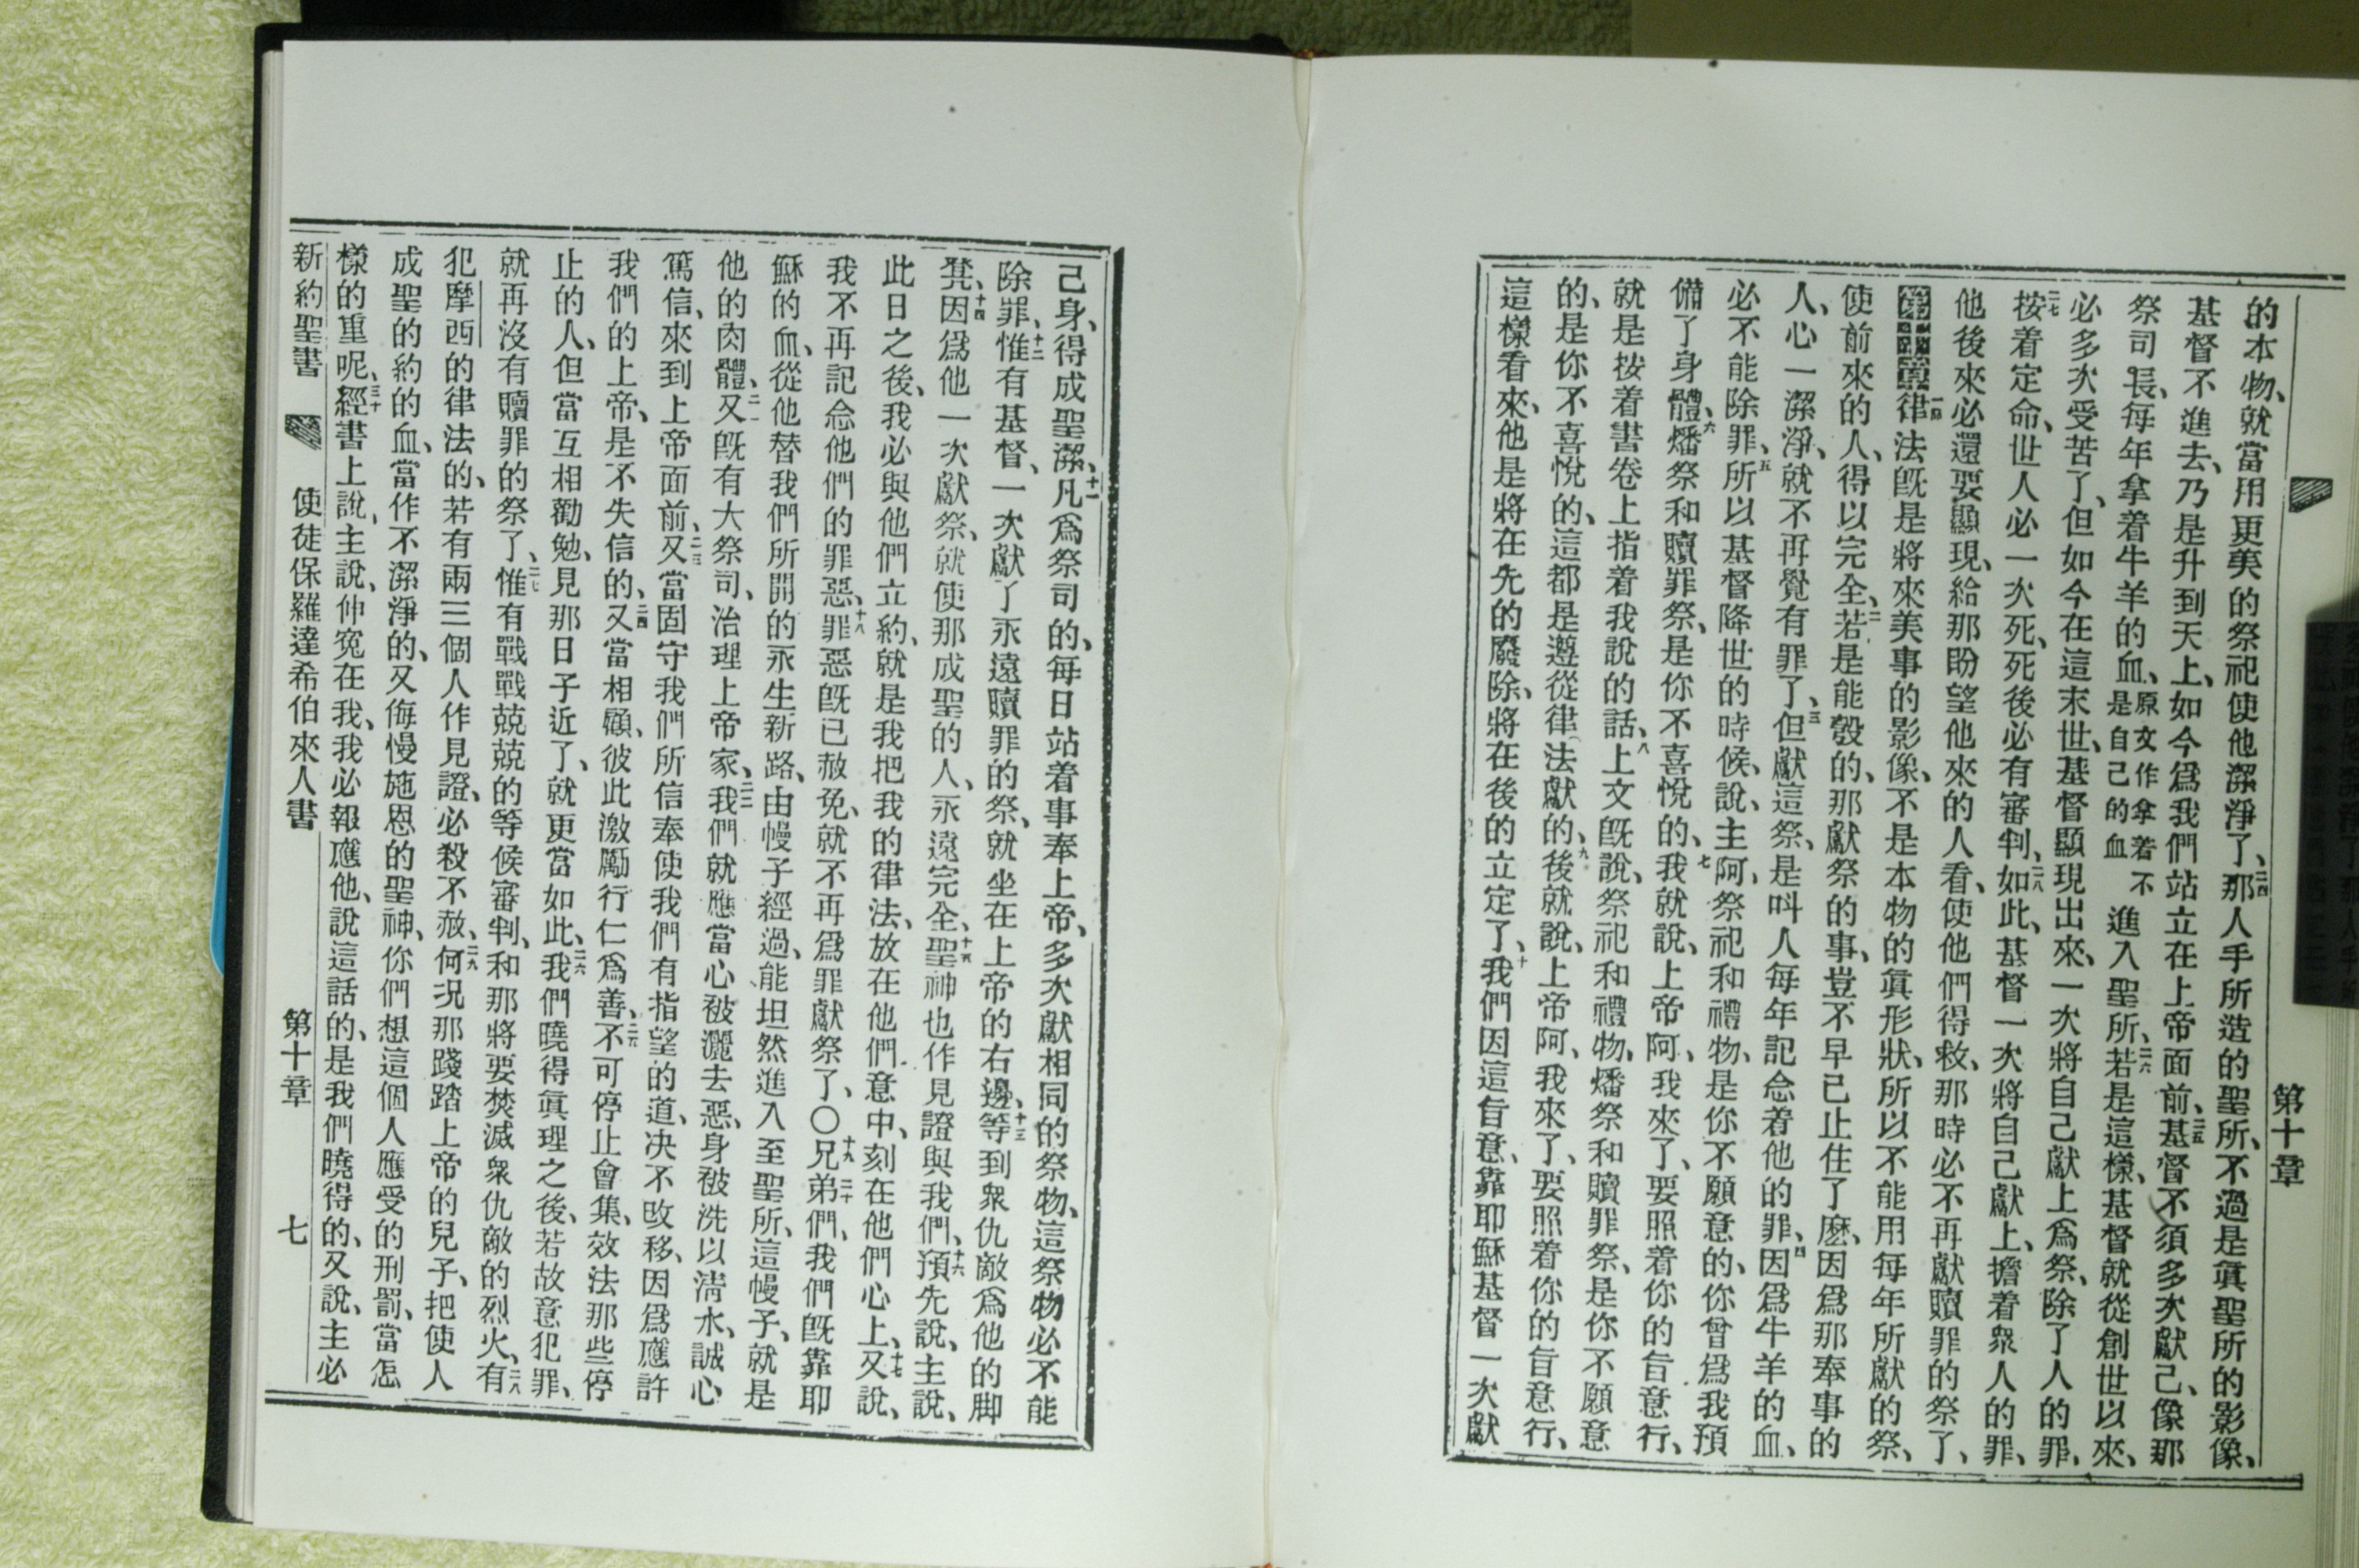 第十章
的本物、就當用更美的祭祀使他潔淨了、二四那人手所造的聖所、不過是眞聖所的影像、
基督不進去、乃是升到天上、如今爲我們站立在上帝面前、二五基督不須多次獻己、像那
祭司長、每年拿着牛羊的血、原文作拿着不是自己的血進入聖所、二六若是這樣、基督就從創世以來、
必多次受苦了、但如今在這末世、基督顯現出來、一次將自己獻上爲祭、除了人的罪、
二七按着定命、世人必一次死、死後必有審判、二八如此、基督一次將自己獻上、擔着衆人的罪、
他後來必還要顯現、給那盼望他來的人看、使他們得救、那時必不再獻贖罪的祭了、
第十章一節律法旣是將來美事的影像、不是本物的眞形狀、所以不能用每年所獻的祭、
使前來的人、得以完全、二若是能彀的、那獻祭的事、豈不早已止住了麽、因爲那奉事的
人、心一潔淨、就不再覺有罪了、三但獻這祭、是叫人每年記念着他的罪、四因爲牛羊的血、
必不能除罪、五所以基督降世的時候、說、主阿、祭祀和禮物、是你不願意的、你曾爲我預
備了身體、六燔祭和贖罪祭、是你不喜悅的、七我就說、上帝阿、我來了、要照着你的旨意行、
就是按着書卷上指着我說的話、八上文旣說、祭祀和禮物、燔祭和贖罪祭、是你不願意
的、是你不喜悅的、這都是遵從律法獻的、九後就說、上帝阿、我來了、要照着你的旨意行、
這樣看來、他是將在先的廢除、將在後的立定了、十我們因這旨意、靠耶穌基督一次獻
己身、得成聖潔、十一凡爲祭司的、每日站着事奉上帝、多次獻相同的祭物、這祭物必不能
除罪、十二惟有基督、一次獻了永遠贖罪的祭、就坐在上帝的右邊、十三等到衆仇敵爲他的脚
凳、十四因爲他一次獻祭、就使那成聖的人、永遠完全、十五聖神也作見證與我們、十六預先說、主說、
此日之後、我必與他們立約、就是我把我的律法、放在他們意中、刻在他們心上、十七又說、
我不再記念他們的罪惡、十八罪惡旣已赦免、就不再爲罪獻祭了、〇十九兄弟們、二十我們旣靠耶
穌的血、從他替我們所開的永生新路、由幔子經過、能坦然進入至聖所、這幔子、就是
他的肉體、二一又旣有大祭司、治理上帝家、二二我們就應當心被灑去惡、身被洗以淸水、誠心
篤信、來到上帝面前、二三又當固守我們所信奉使我們有指望的道、决不改移、因爲應許
我們的上帝、是不失信的、二四又當相顧、彼此激勵行仁爲善、二五不可停止會集、效法那些停
止的人、但當互相勸勉、見那日子近了、就更當如此、二六我們曉得眞理之後、若故意犯罪、
就再沒有贖罪的祭了、二七惟有戰戰兢兢的等候審判、和那將要焚滅衆仇敵的烈火、二八有
犯摩西的律法的、若有兩三個人作見證、必殺不赦、二九何况那踐踏上帝的兒子、把使人
成聖的約的血、當作不潔淨的、又侮慢施恩的聖神、你們想這個人應受的刑罰、當怎
樣的重呢、三十經書上說、主說、伸寃在我、我必報應他、說這話的、是我們曉得的、又說、主必
新約聖書 使徒保羅達希伯來人書 第十章 七